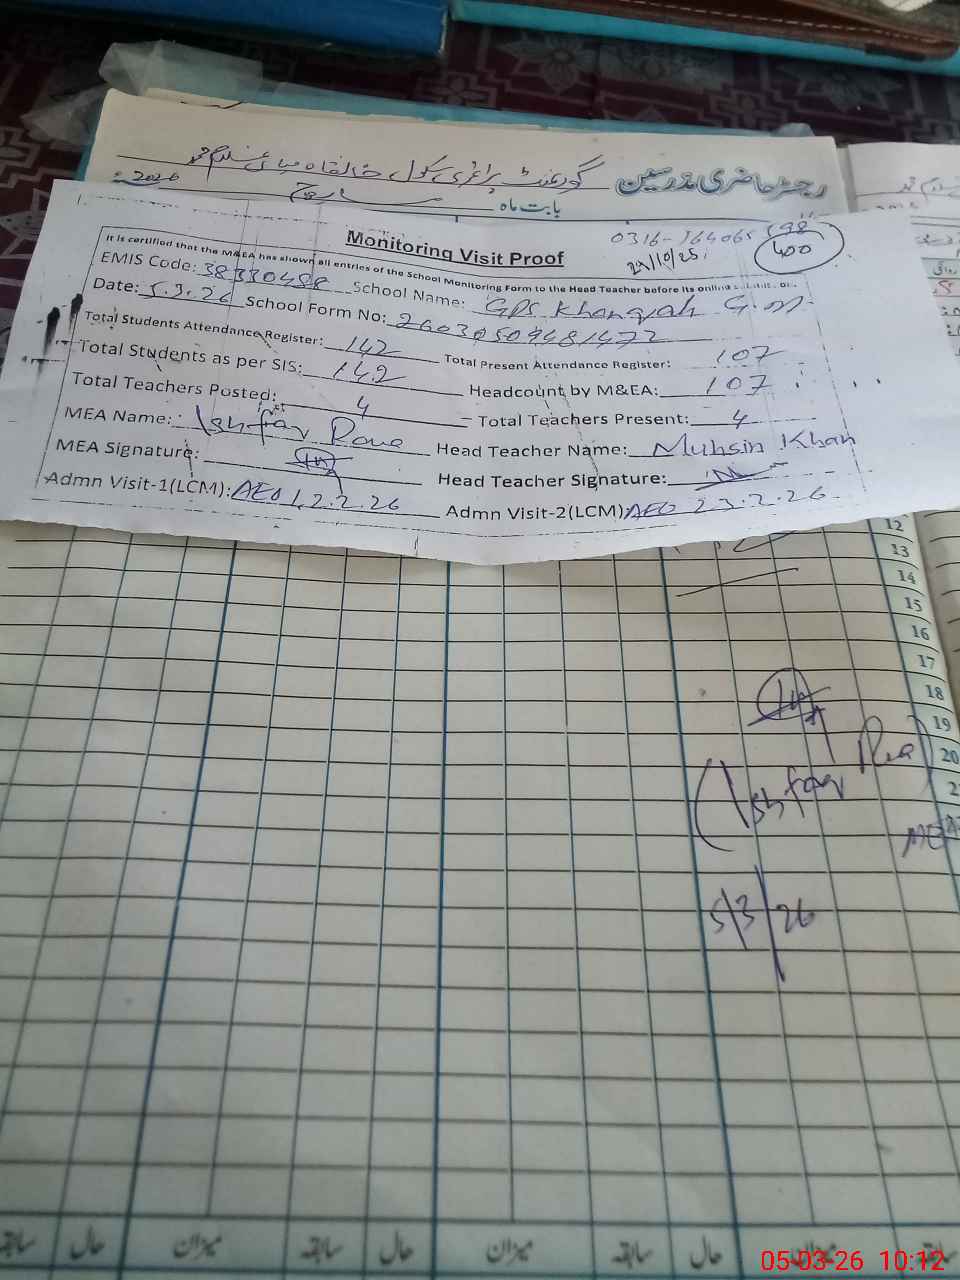 رجسٹر حاضری مدرسین گورنمنٹ پرائمری سکول خانقاہ میاں غلام محمد
بابت ماہ مارچ 2026ء
Monitoring Visit Proof
29/10/25
400
It is certified that the M&EA has shown all entries of the School Monitoring Form to the Head Teacher before its online
EMIS Code: 38330488 School Name: GPS Khanqah G.M
Date: 5.3.26 School Form No: 26030509481472
Total Students Attendance Register: 142 Total Present Attendance Register: 107
Total Students as per SIS: 142 Headcount by M&EA: 107
Total Teachers Posted: 4 Total Teachers Present: 4
MEA Name: Ishfaq Head Teacher Name: Muhsin Khan
MEA Signature: Head Teacher Signature:
Admn Visit-1(LCM): AEO 12.2.26 Admn Visit-2(LCM) AEO 23.2.26
12
13
14
15
16
17
18
19
20
(Ishfaq
MEA
5/3/26
سابقہ حال میزان سابقہ حال میزان سابقہ حال میزان
05-03-26 10:12